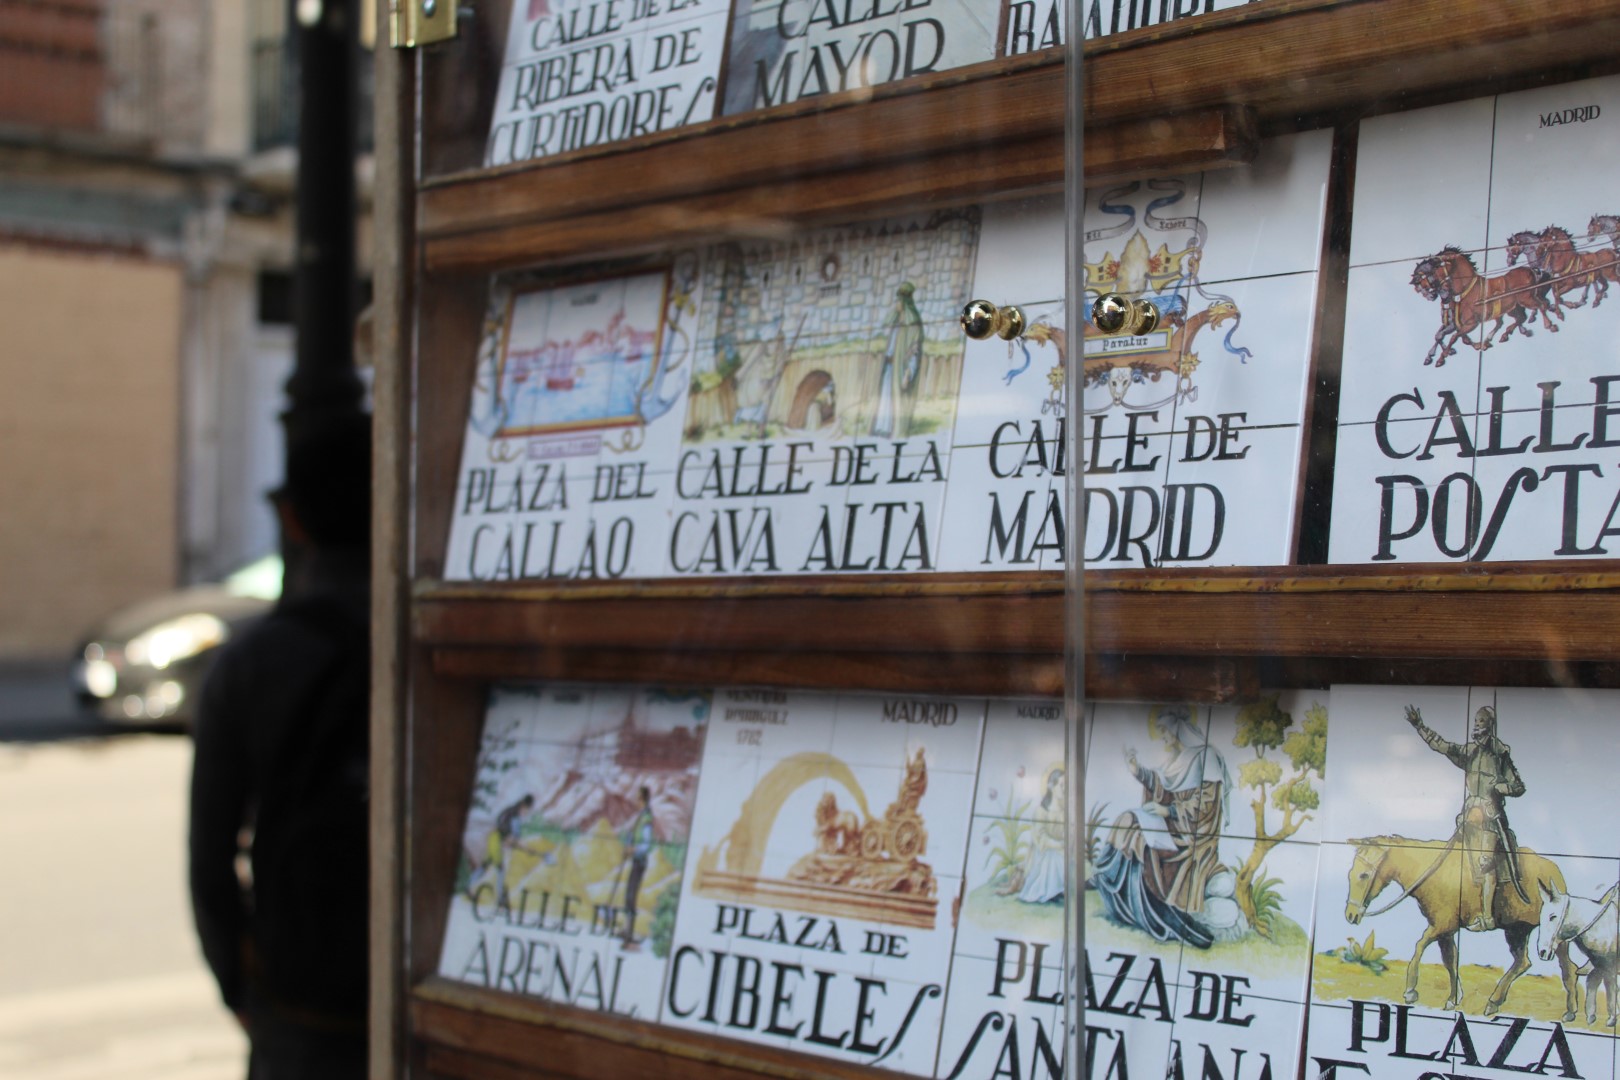 CALLE DE LA
RIBERA DE
CURTIDORES
CALLE
MAYOR
PLAZA DEL
CALLAO
CALLE DE LA
CAVA ALTA
Paratur
CALLE DE
MADRID
MADRID
CALLE
POSTA
CALLE DEL
ARENAL
VENTURA
RODRIGUEZ
1782
MADRID
PLAZA DE
CIBELES
MADRID
PLAZA DE
SANTA ANA
PLAZA